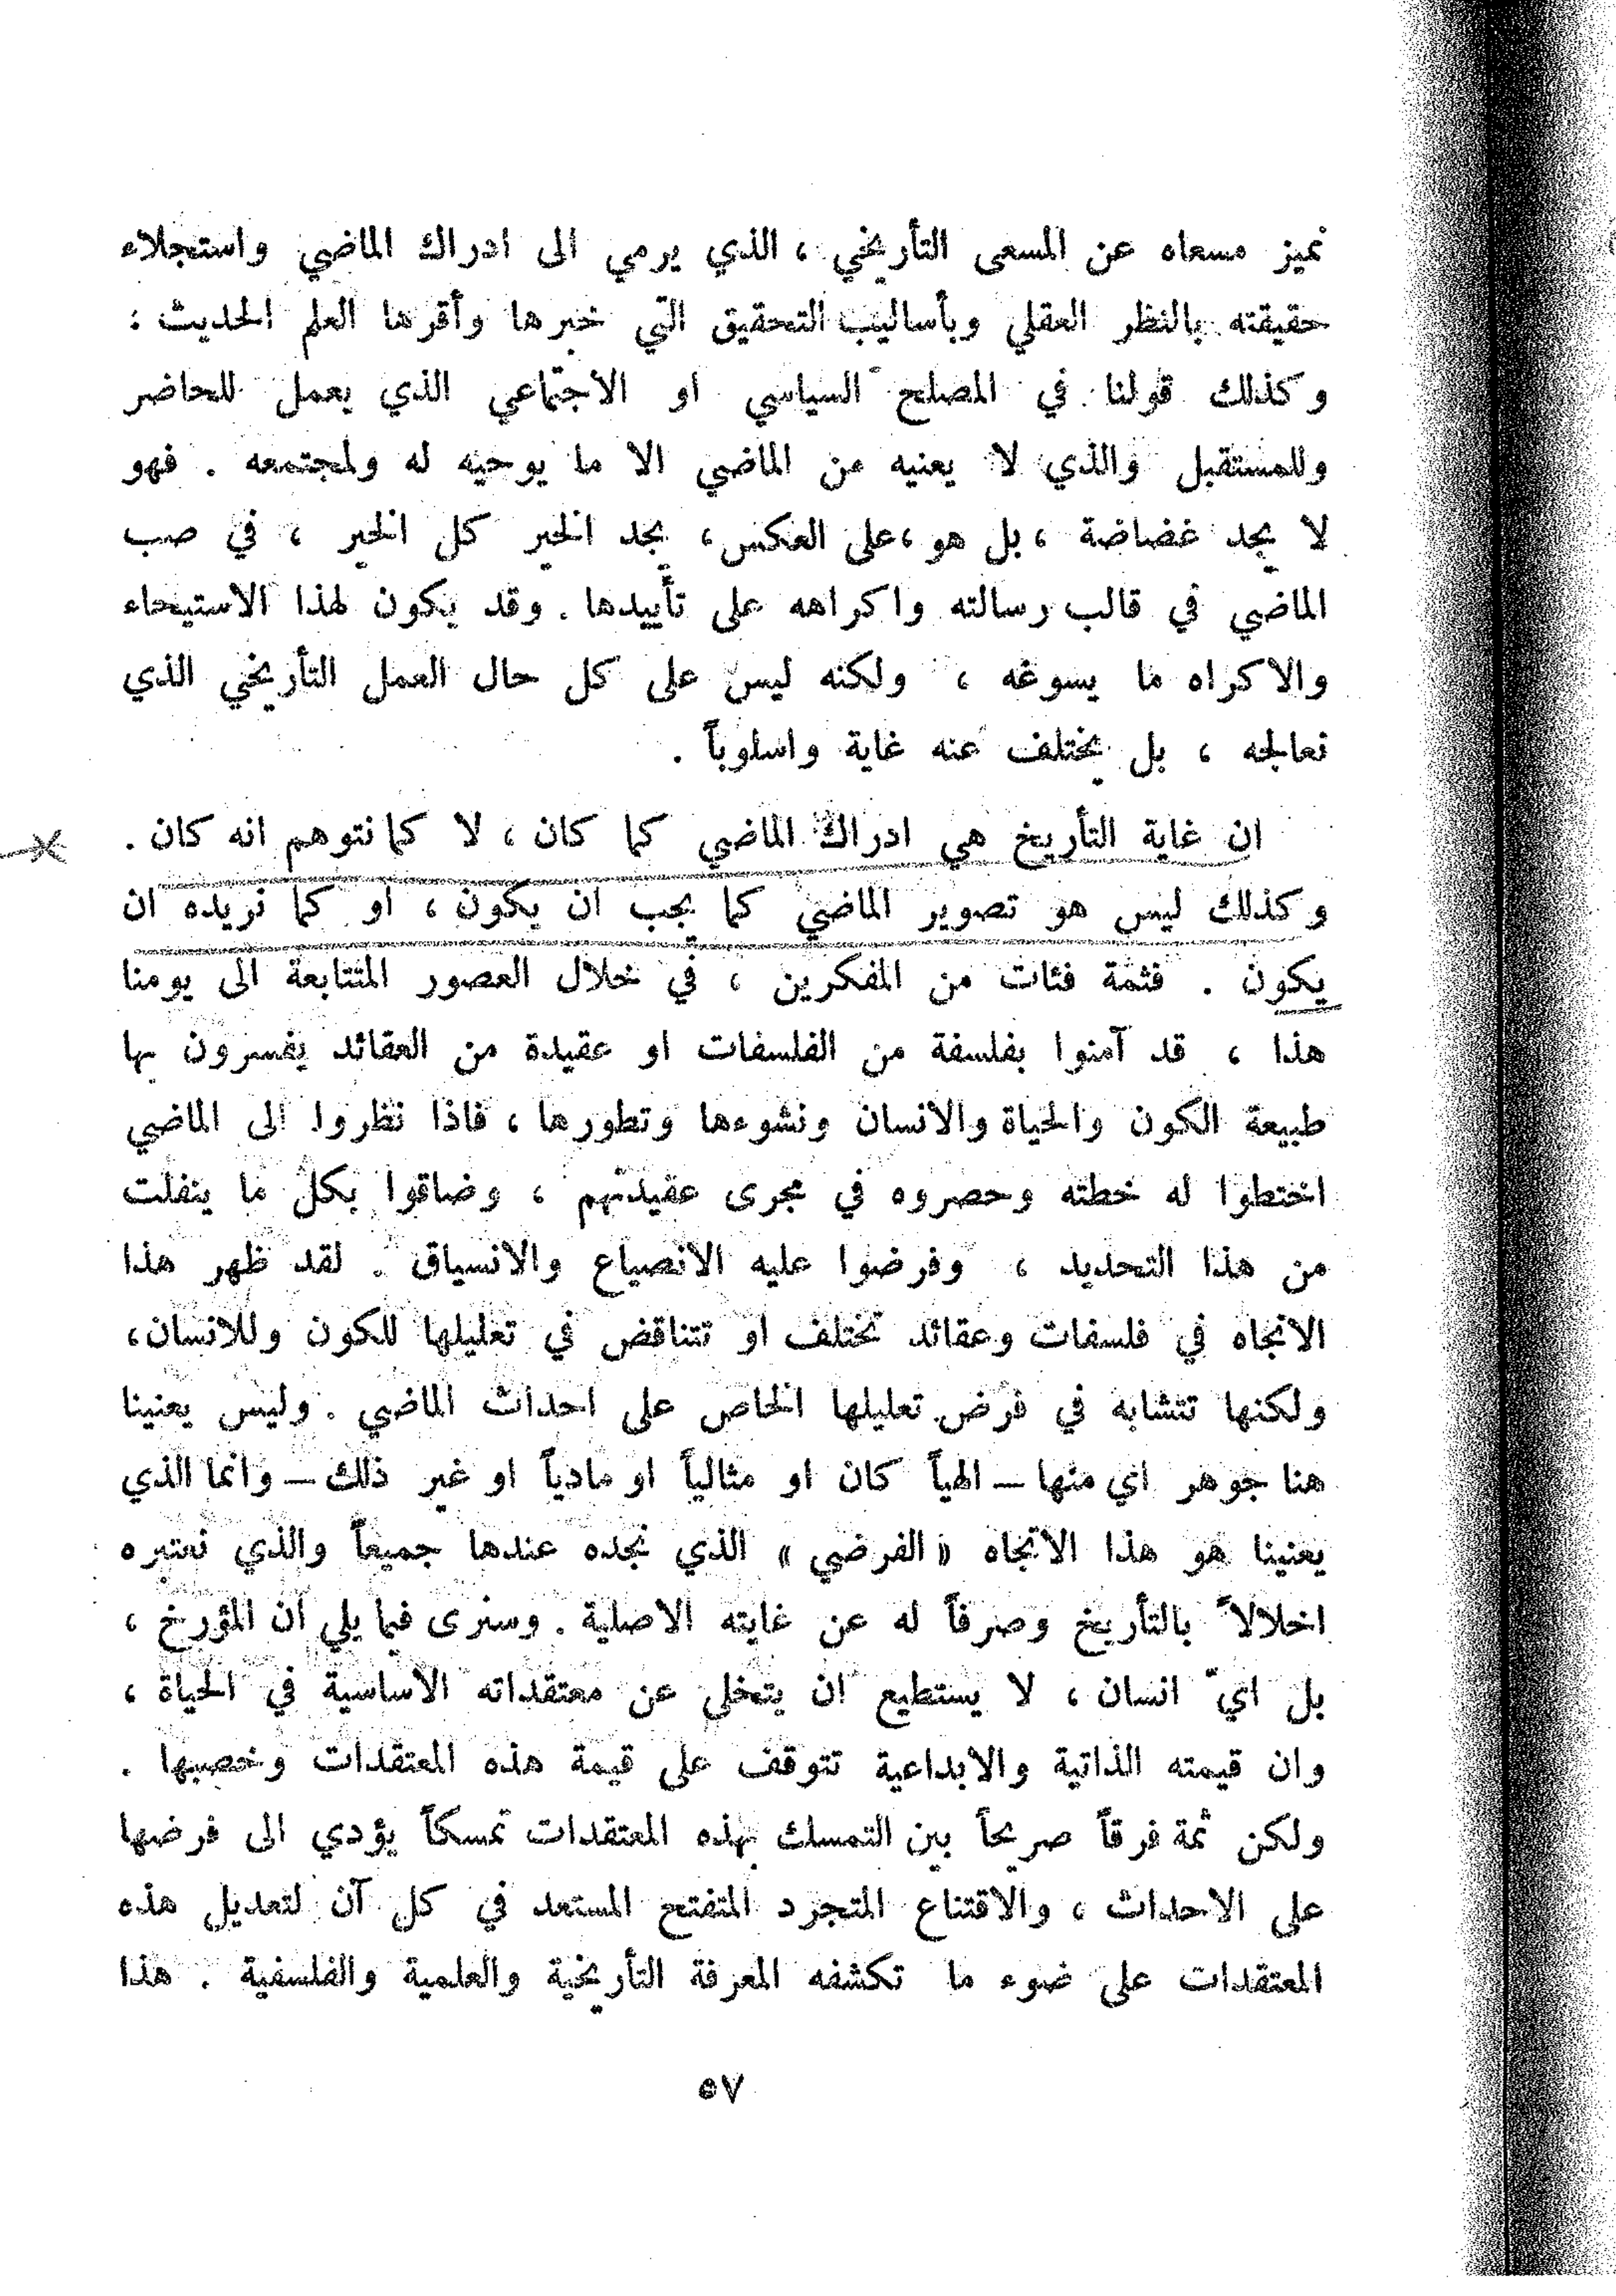 نميز مسعاه عن المسعى التأريخي ، الذي يرمي الى ادراك الماضي واستجلاء
حقيقته بالنظر العقلي وبأساليب التحقيق التي خبرها وأقرها العلم الحديث :
وكذلك قولنا في المصلح السياسي او الاجتماعي الذي يعمل للحاضر
وللمستقبل والذي لا يعنيه من الماضي الا ما يوحيه له ولمجتمعه . فهو
لا يجد غضاضة ، بل هو ، على العكس ، يجد الخير كل الخير ، في صب
الماضي في قالب رسالته واكراهه على تأييدها . وقد يكون لهذا الاستيحاء
والاكراه ما يسوغه ، ولكنه ليس على كل حال العمل التأريخي الذي
نعالجه ، بل يختلف عنه غاية واسلوباً .
ان غاية التأريخ هي ادراك الماضي كما كان ، لا كما نتوهم انه كان .
وكذلك ليس هو تصوير الماضي كما يجب ان يكون ، او كما نريده ان
يكون . فثمة فئات من المفكرين ، في خلال العصور المتتابعة الى يومنا
هذا ، قد آمنوا بفلسفة من الفلسفات او عقيدة من العقائد يفسرون بها
طبيعة الكون والحياة والانسان ونشوءها وتطورها ، فاذا نظروا الى الماضي
اختطوا له خطته وحصروه في مجرى عقيدتهم ، وضاقوا بكل ما ينفلت
من هذا التحديد ، وفرضوا عليه الانصياع والانسياق . لقد ظهر هذا
الاتجاه في فلسفات وعقائد تختلف او تتناقض في تعليلها للكون وللانسان ،
ولكنها تتشابه في فرض تعليلها الخاص على احداث الماضي . وليس يعنينا
هنا جوهر اي منها – الهياً كان او مثالياً او مادياً او غير ذلك – وانما الذي
يعنينا هو هذا الاتجاه « الفرضي » الذي نجده عندها جميعاً والذي نعتبره
اخلالاً بالتأريخ وصرفاً له عن غايته الاصلية . وسنرى فيما يلي ان المؤرخ ،
بل ايّ انسان ، لا يستطيع ان يتخلى عن معتقداته الاساسية في الحياة ،
وان قيمته الذاتية والابداعية تتوقف على قيمة هذه المعتقدات وخصبها .
ولكن ثمة فرقاً صريحاً بين التمسك بهذه المعتقدات تمسكاً يؤدي الى فرضها
على الاحداث ، والاقتناع المتجرد المتفتح المستعد في كل آن لتعديل هذه
المعتقدات على ضوء ما تكشفه المعرفة التأريخية والعلمية والفلسفية . هذا
٥٧